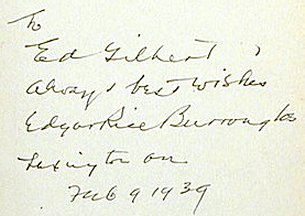 To
Ed Gilbert
Always best wishes
Edgar Rice Burroughs
Feb 9 1939